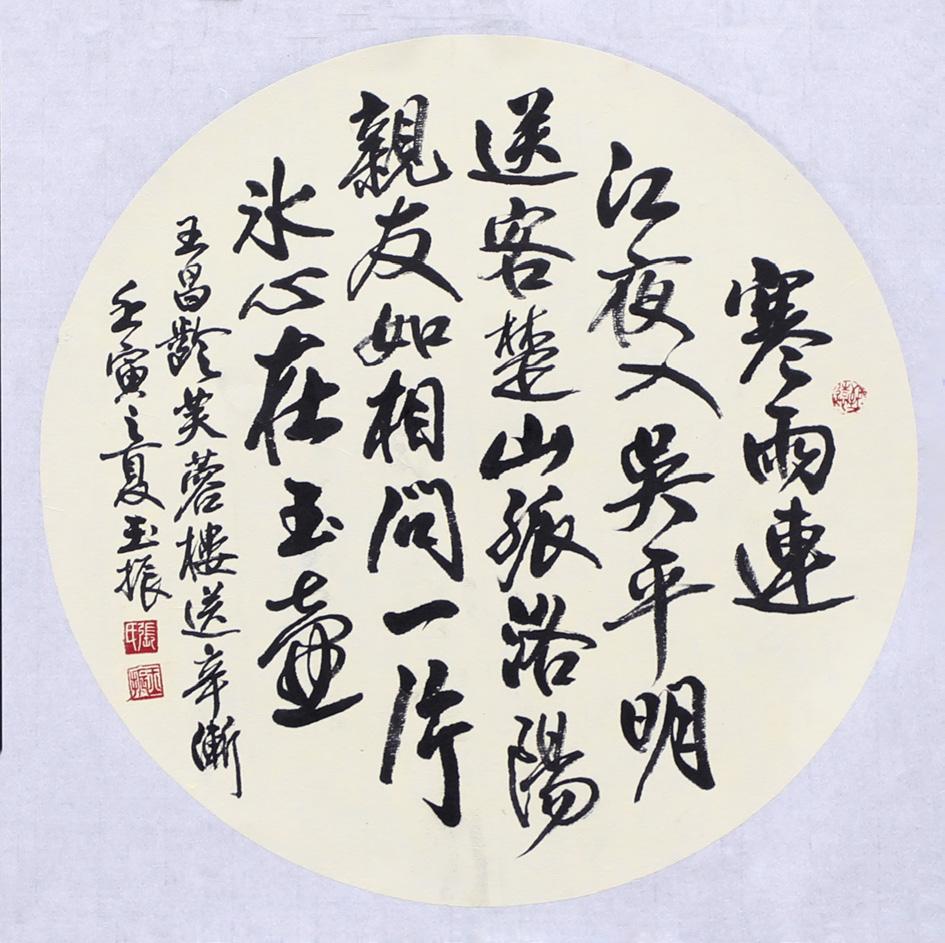 寒雨連
江夜入吳平明
送客楚山孤洛陽
親友如相問一片
氷心在玉壺
王昌齡芙蓉樓送辛漸
壬寅之夏玉振
張氏
玉振